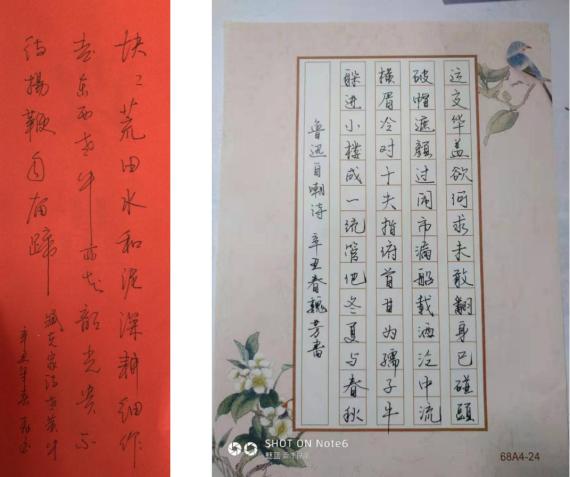 块〻荒田水和泥深耕细作
走东西老牛亦知韶光贵不
待扬鞭自奋蹄
臧克家诗老黄牛
辛丑年春
运交华盖欲何求未敢翻身已碰頭
破帽遮颜过闹市漏船载酒泛中流
横眉冷对千夫指俯首甘为孺子牛
躲进小楼成一统管他冬夏与春秋
鲁迅自嘲诗 辛丑春魏芳书
SHOT ON Note6
68A4-24